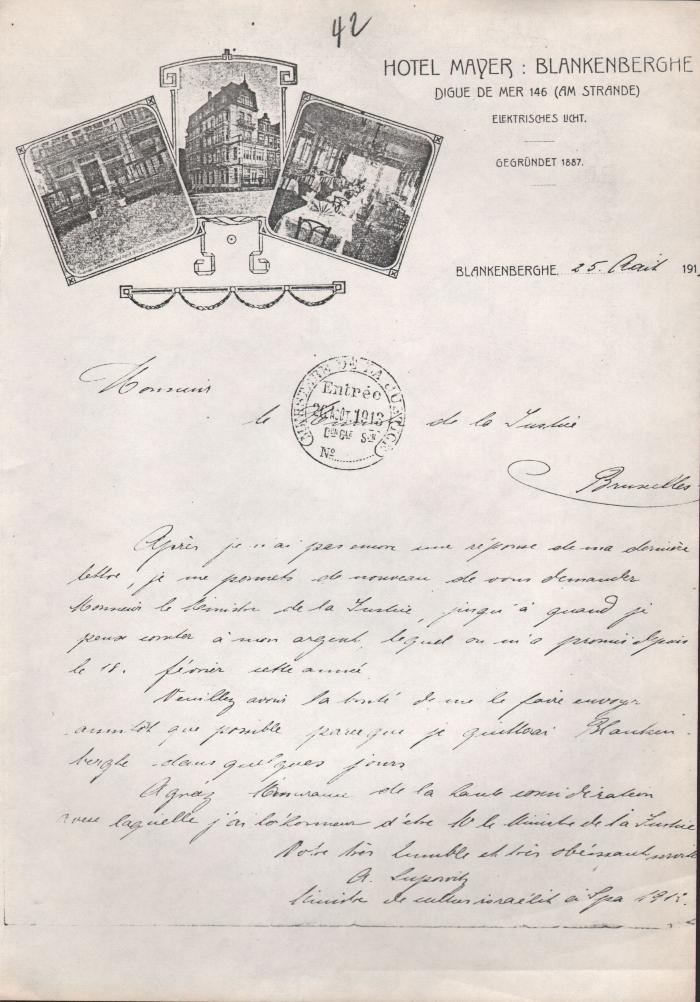 42
HOTEL MAYER : BLANKENBERGHE
DIGUE DE MER 146 (AM STRANDE)
ELEKTRISCHES LICHT.
GEGRÜNDET 1887.
BLANKENBERGHE, 25. Août 191
Monsieur
MINISTÈRE DE LA JUSTICE
Entrée
26 AOUT. 1913
Don Gle Sn
No
le de la Justice
Bruxelles
Après je n'ai pas encore une réponse de ma dernière
lettre, je me permets de nouveau de vous demander
Monsieur le Ministre de la Justice, jusqu'à quand je
peux compter à mon argent, lequel on m'a promis depuis
le 18. février cette année.
Veuillez avoir la bonté de me le faire envoyer
aussitôt que possible parceque je quitterai Blanken-
berghe dans quelques jours
Agréez l'assurance de la haute considération
avec laquelle j'ai l'honneur d'être Mr le Ministre de la Justice
Votre très humble et très obéissant
A.
Ministre de cultus israélit à Spa 1913.